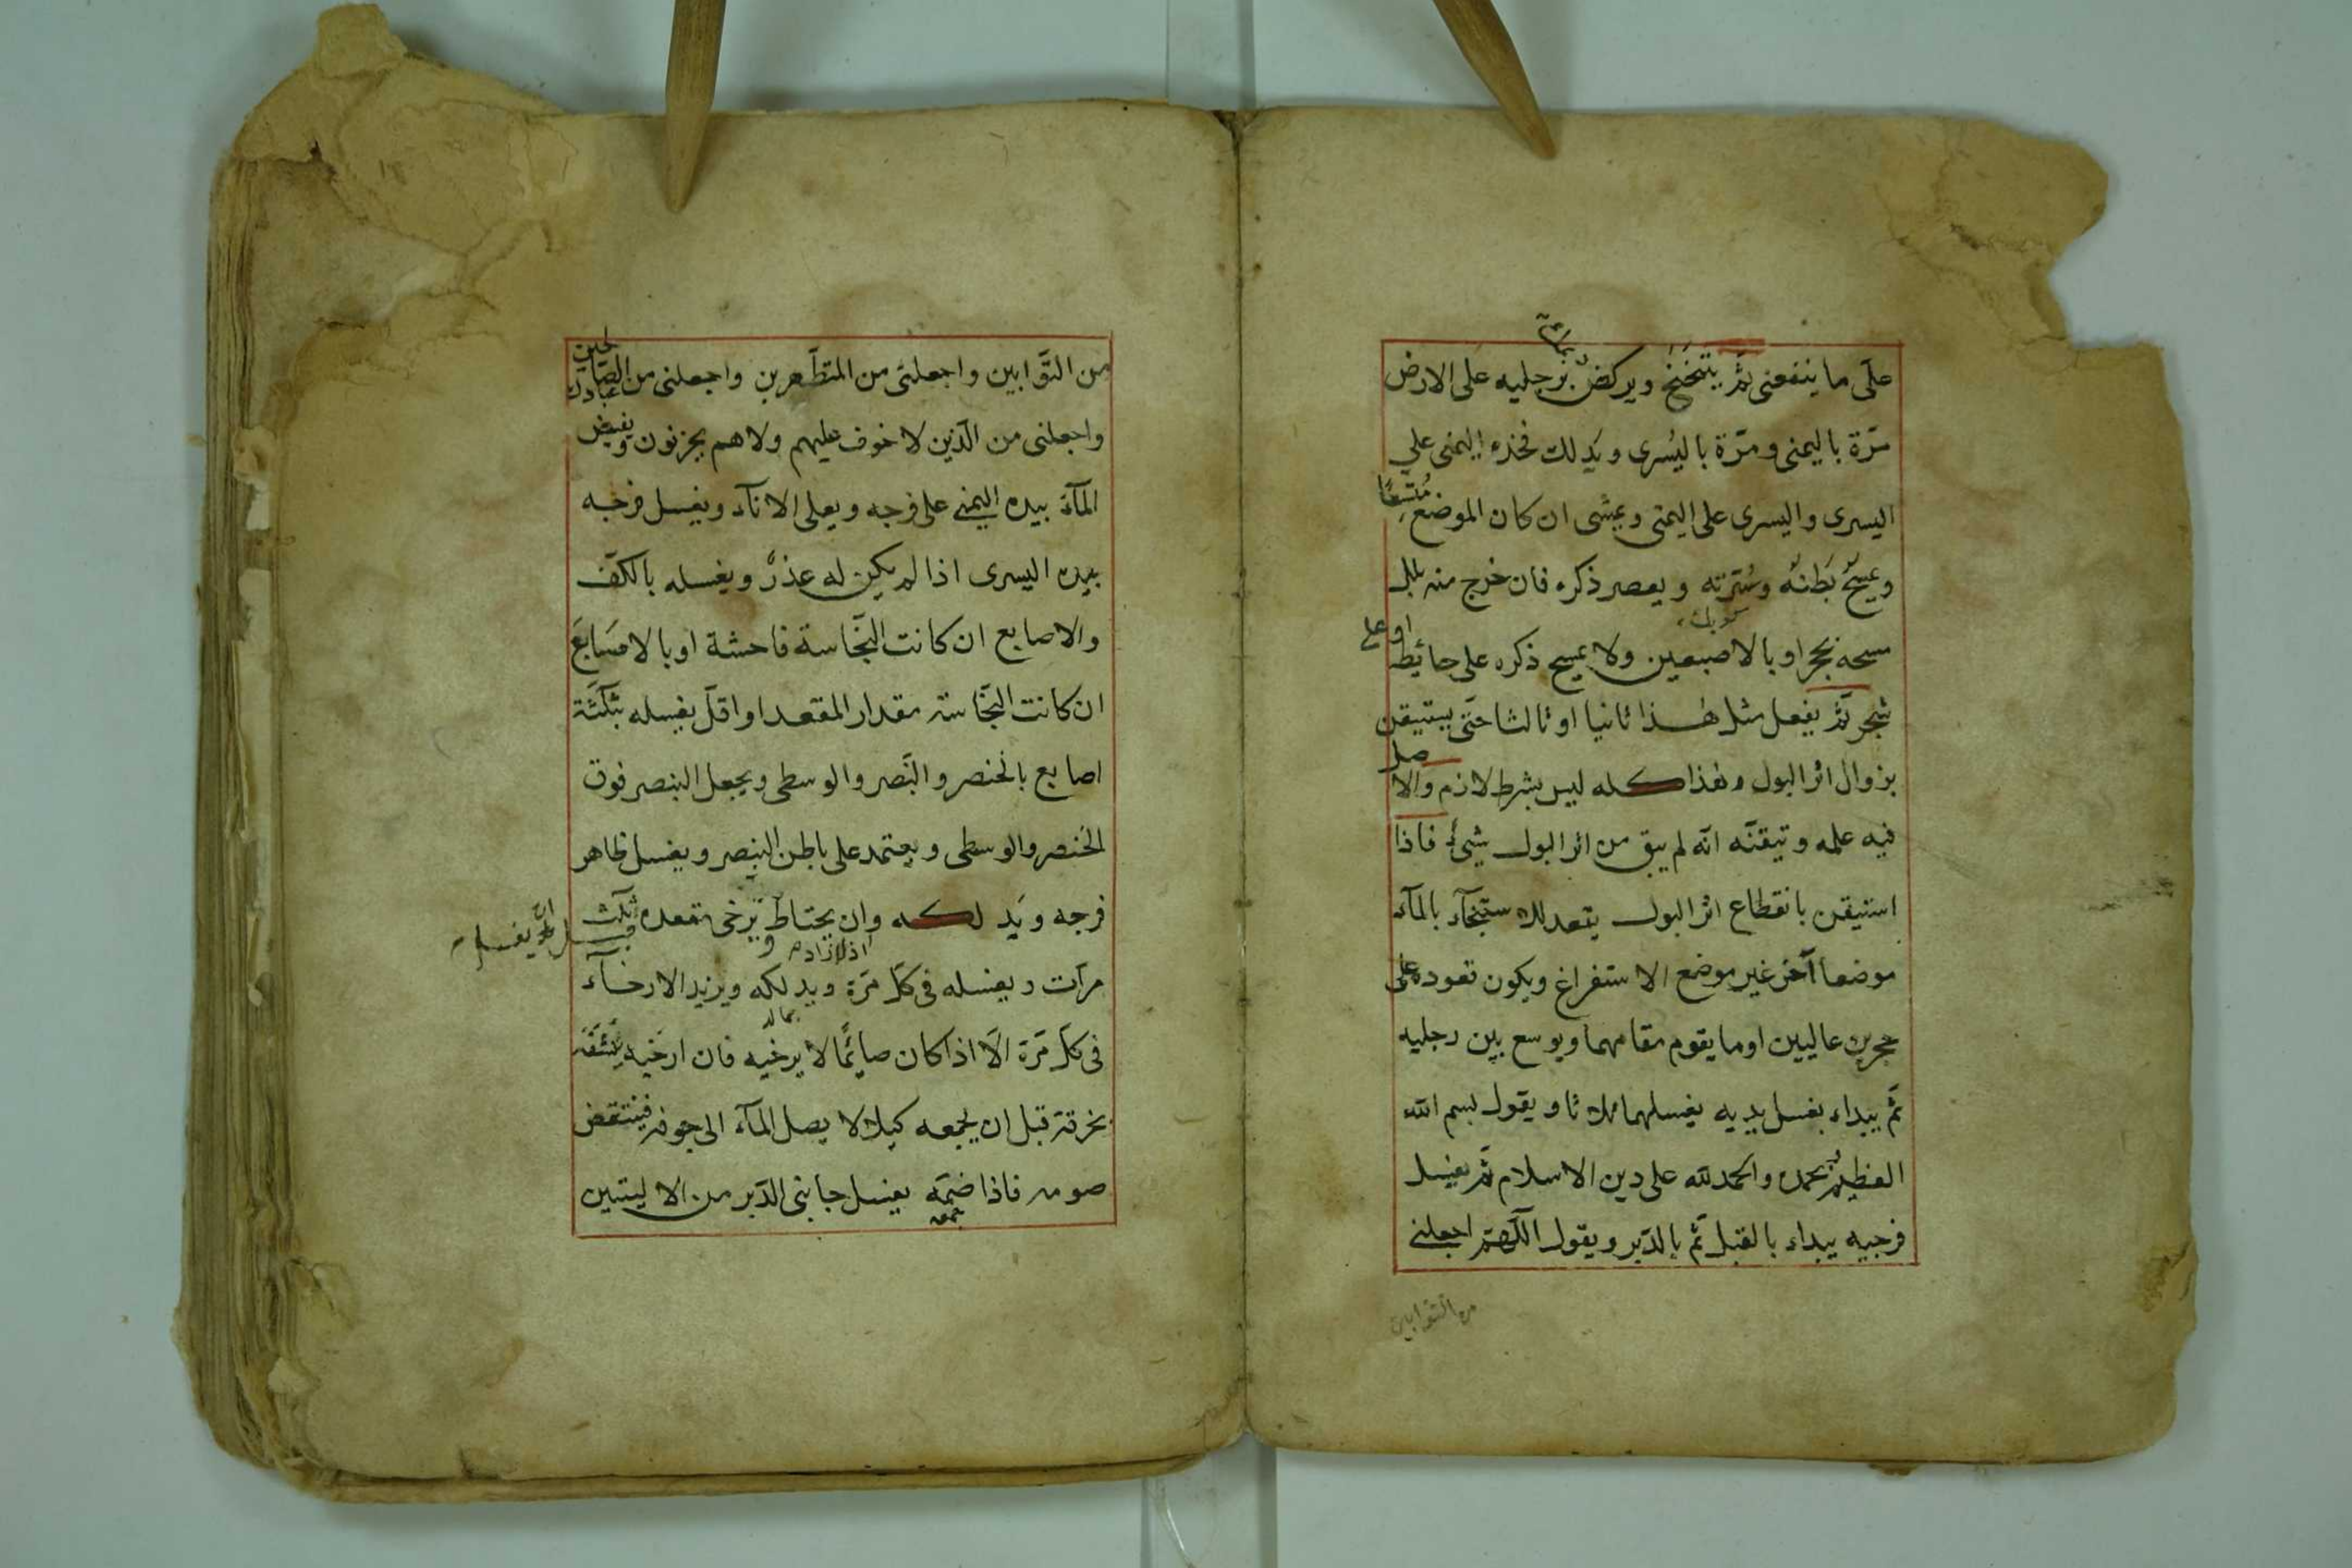 على ما ينفعنى ثمّ يتنحنح ويركض برجليه على الارض
مرّة باليمنى ومرّة باليُسرى ويدلك فخذه اليمنى على
اليسرى واليسرى على اليمنى ويمشى ان كان الموضع متّسعًا
ويمسح بَطنَه وسُرّته ويعصر ذكره فان خرج منه بلل
مسحه بحجر او بالاصبعين ولا يمسح ذكره على حائط او على
شجر ثمّ يفعل مثل هٰذا ثانيا او ثالثا حتّى يستيقن
بزوال اثر البول وهذا كله ليس بشرط لازم والاصل
فيه علمه وتيقنّه انّه لم يبق من اثر البول شئ فاذا
استيقن بانقطاع اثر البول يتعد للاستنجآء بالمآء
موضعا آخر غير موضع الاستفراغ ويكون قعوده على
حجرين عاليين او ما يقوم مقامهما ويوسع بين رجليه
ثمّ يبداء بغسل يديه يغسلهما ثلاثا ويقول بسم الله
العظيم وبحمده والحمد لله على دين الاسلام ثمّ يغسل
فرجيه يبداء بالقبل ثمّ بالدّبر ويقول اللّهمّ اجعلنى
من التّوّابين
من التّوّابين واجعلنى من المتطّهرين واجعلنى من عبادك الصّالحين
واجعلنى من الّذين لا خوف عليهم ولا هم يحزنون ويفيض
المآء بيده اليمنى على فرجه ويعلى الاناء ويغسل فرجه
بيده اليسرى اذا لم يكن له عذرٌ ويغسله بالكفّ
والاصابع ان كانت النّجاسة فاحشة او بالاصَابعَ
ان كانت النّجاسة مقدار المقعد او اقلّ يغسله بثلثة
اصابع بالخنصر والبنصر والوسطى ويجعل البنصر فوق
الخنصر والوسطى ويعتمد على باطن البنصر ويغسل ظاهر
فرجه ويدلكه وان يحتاط يرخى مقعده ثلث
اذا اراد ان يغسله
مرّات ويغسله فى كلّ مرّة ويدلكه ويزيد الارخآء
فى كلّ مرّة الّا اذا كان صائمًا لا يرخيه فان ارخيه يُنشّفه
بخرقة قبل ان يجمعه كيلا لا يصل المآء الى جوفه فينتقض
صومه فاذا ضمّه يغسل جانبى الدّبر من الاليتين
جمعه